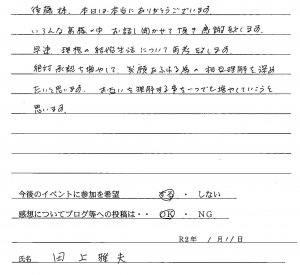 後藤様、本日は本当にありがとうございます。
いろんな葛藤の中 お話し聞かせて頂き感謝致します。
早速、理想の結婚生活について再考致します。
絶対承認も増やして、笑顔あふれる為の相互理解を深め
たいと思います。お互いを理解する事を一つでも増やしていこうと
思います。
今後のイベントに参加を希望 する・しない
感想についてブログ等への投稿は・・ OK・NG
R2年 1月11日
氏名 田上 雅夫